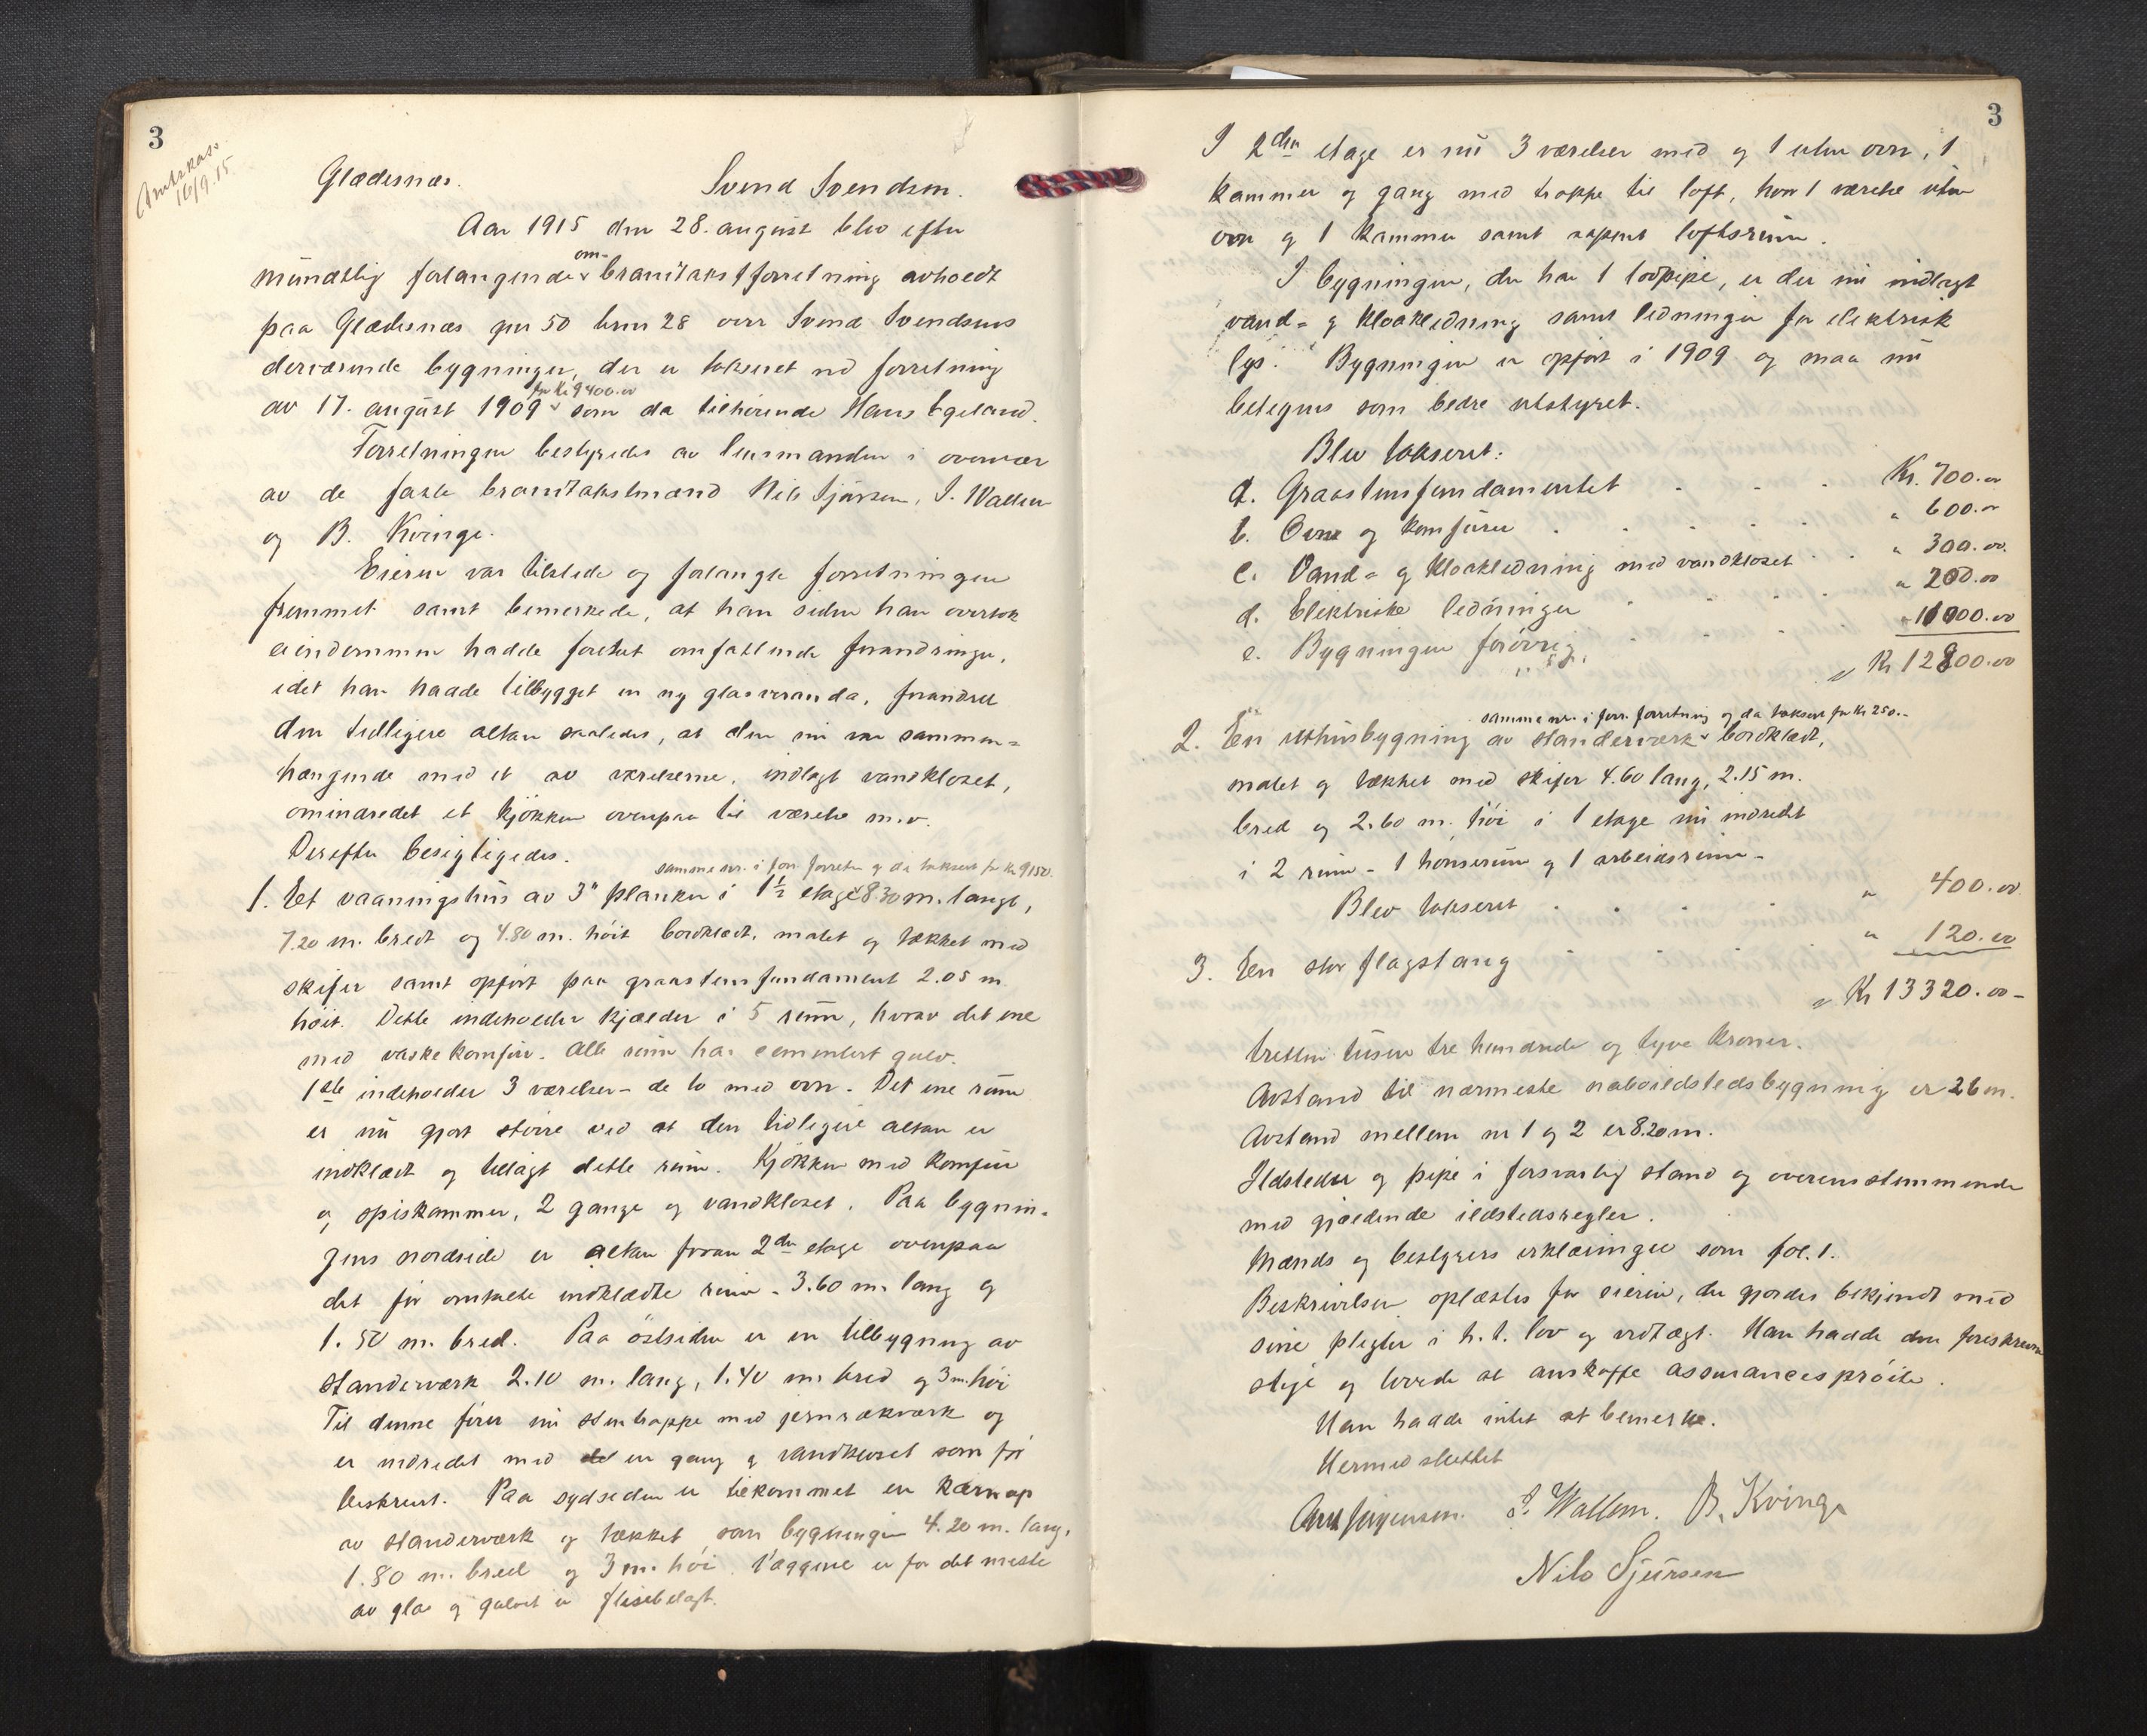 3
Amtskass.
16/9.15.
Glædesnæs. Svend Svendsen.
Aar 1915 den 28. august blev efter
mundtlig forlangende om- brandtakstforretning avholdt
paa Glædesnæs gnr 50 brnr 28 over Svend Svendsens
derværende bygninger, der er takseret ved forretning
av 17. august 1909 for Kr 9400.00 som da tilhørende Hans Egeland.
Forretningen bestyredes av lensmanden i overvær
av de faste brandtakstmænd Nils Sjursen, J. Wallem
og B. Kvinge.
Eieren var tilstede og forlangte forretningen
fremmet samt bemerkede, at han siden han overtok
eiendommen hadde foretat omfattende forandringer,
idet han hadde tilbygget en ny glasveranda, forandret
den tidligere altan saaledes, at den nu var sammen-
hængende med et av værelserne, indlagt vandkloset,
ominredet et kjøkken ovenpaa til værelse m.v.
Derefter besigtigedes.
samme nr. i forr. forretn og da takseret for Kr 9150.
1. Et vaaningshus av 3" planker i 1½ etage 8.30 m. langt,
7.20 m. bredt og 4.80 m. høit bordklædt, malet og tækket med
skifer samt opført paa graastensfundament 2.05 m.
høit. Dette indeholder kjælder i 5 rum, hvorav det ene
med vaskekomfur. Alle rum har cementert gulv.
1ste indeholder 3 værelser - de to med ovn. Det ene rum
er nu gjort større ved at den tidligere altan er
indklædt og tillagt dette rum. Kjøkken med komfur
og spiskammer, 2 gange og vandkloset. Paa bygnin-
gens nordside er altan foran 2den etage ovenpaa
det før omtalte indklædte rum - 3.60 m. lang og
1.50 m. bred. Paa østsiden er en tilbygning av
standerværk 2.10 m. lang, 1.40 m. bred og 3 m. høi
Til denne fører nu stentrappe med jernrækværk og
er indredet med en gang og vandkloset som før
beskrevet. Paa sydsiden er tilkommet en karnap
av standerværk og tækket som bygningen 4.20 m. lang,
1.80 m. bred og 3 m. høi. Væggene er for det meste
av glas og gulvet er flisebelagt.
3
I 2den etage er nu 3 værelser med og 1 uten ovn, 1
kammer og gang med trappe til loft, hvor 1 værelse uten
ovn og 1 kammer samt aapent loftsrum.
I bygningen, der har 1 rørpipe, er der nu indlagt
vand- og kloakledning samt ledninger for elektrisk
lys. Bygningen er opført i 1909 og maa nu
betegnes som bedre utstyret.
Blev takseret:
a. Graastensfundamentet Kr. 700.00
b. Ovne og komfurer " 600.00
c. Vand- og kloakledning med vandkloset " 300.00
d. Elektriske ledninger " 200.00
e. Bygningen forøvrig " 11000.00
Kr 12800.00
samme nr. i forr. forretning og da takseret for Kr 250.-
2. En uthusbygning av standerværk bordklædt,
malet og tækket med skifer 4.60 lang, 2.15 m.
bred og 2.60 m. høi i 1 etage nu indredet
i 2 rum - 1 hønserum og 1 arbeidsrum -
Blev takseret " 400.00
3. En stor flagstang " 120.00
Kr 13320.00 -
tretten tusen tre hundrede og tyve kroner.
Avstand til nærmeste naboildstedsbygning er 26 m.
Avstand mellem nr 1 og 2 er 8.20 m.
Ildsteder og pipe i forsvarlig stand og overensstemmende
med gjældende ildstedsregler.
Mænds og bestyrers erklæringer som fol. 1.
Beskrivelsen oplæstes for eieren, der gjordes bekjendt med
sine pligter i h.t. lov og vedtægt. Han hadde den foreskrevne
stige og lovede at anskaffe assuranceskrøite.
Han hadde intet at bemerke.
Hermed sluttet
Jørgensen. J. Wallem. B. Kvinge
Nils Sjursen